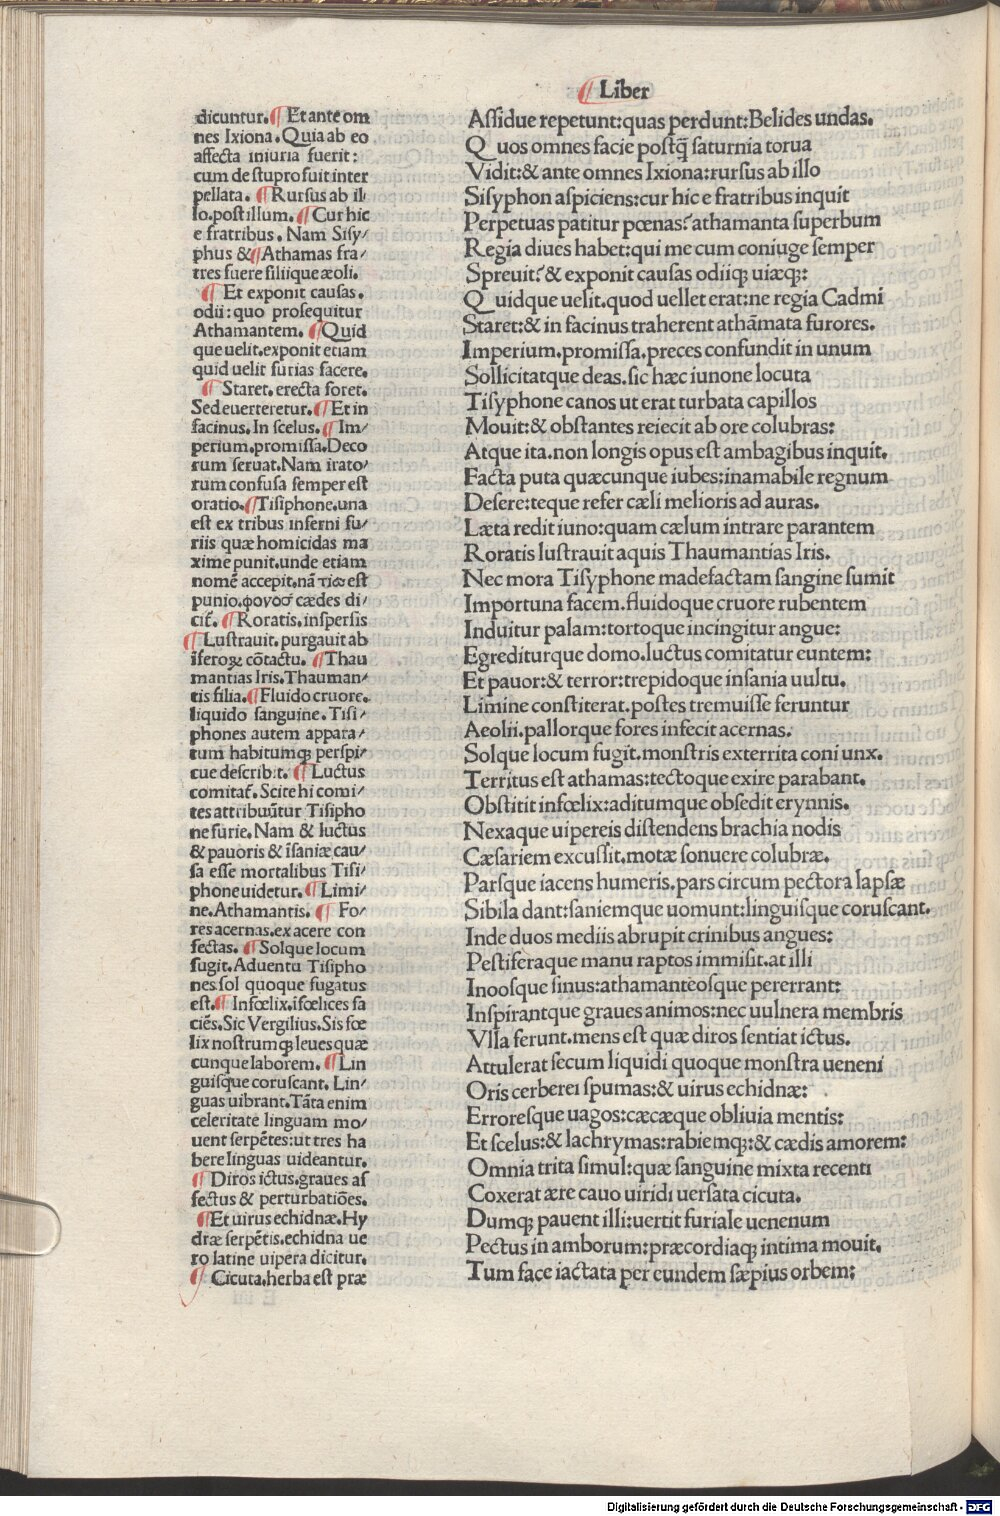 ¶ Liber
dicuntur.¶ Et ante om
nes Ixiona. Quia ab eo
affecta iniuria fuerit:
cum de stupro fuit inter
pellata. ¶ Rursus ab il
lo. post illum. ¶ Cur hic
e fratribus. Nam Sisy/
phus &¶Athamas fra/
tres fuere filiique æoli.
¶ Et exponit causas.
odii: quo prosequitur
Athamantem. ¶Quid
que uelit. exponit etiam
quid uelit furias facere.
¶ Staret. erecta foret.
Sed euerteretur.¶ Et in
facinus. In scelus.¶ Im/
perium. promissa. Deco
rum seruat. Nam irato/
rum confusa semper est
oratio.¶Tisiphone. una
est ex tribus inferni fu/
riis quæ homicidas ma
xime punit. unde etiam
nomē accepit. nā τισ est
punio. φονοσ cædes di/
cit̄. ¶Roratis. inspersis
¶Lustrauit. purgauit ab
īferoꝝ cōtactu. ¶Thau
mantias Iris. Thauman/
tis filia.¶Fluido cruore.
liquido sanguine. Tisi/
phones autem appara/
tum habitumqꝫ perspi/
cue describit. ¶Luctus
comitat̄. Scite hi comi/
tes attribuūtur Tisipho
ne furie. Nam & luctus
& pauoris & īsaniæ cau/
sa esse mortalibus Tisi/
phone uidetur. ¶Limi/
ne. Athamantis. ¶ Fo/
res acernas. ex acere con
fectas. ¶ Solque locum
fugit. Aduentu Tisipho
nes sol quoque fugatus
est.¶ Infœlix. īfœlices fa
ciēs. Sic Vergilius. Sis fœ
lix nostrumqꝫ leues quæ
cunque laborem. ¶Lin
guisque coruscant. Lin/
guas uibrant. Tāta enim
celeritate linguam mo/
uent serpētes: ut tres ha
bere linguas uideantur.
¶ Diros ictus. graues af
fectus & perturbatiōes.
¶Et uirus echidnæ. Hy
dræ serpētis. echidna ue
ro latine uipera dicitur.
¶ Cicuta. herba est præ
Assidue repetunt: quas perdunt: Belides undas.
Q uos omnes facie postq̄ saturnia torua
Vidit: & ante omnes Ixiona: rursus ab illo
Sisyphon aspiciens: cur hic e fratribus inquit
Perpetuas patitur pœnas? athamanta superbum
Regia diues habet: qui me cum coniuge semper
Spreuit? & exponit causas odiiqꝫ uiæqꝫ:
Q uidque uelit. quod uellet erat: ne regia Cadmi
Staret: & in facinus traherent athāmata furores.
Imperium. promissa. preces confundit in unum
Sollicitatque deas. sic hæc iunone locuta
Tisyphone canos ut erat turbata capillos
Mouit: & obstantes reiecit ab ore colubras:
Atque ita. non longis opus est ambagibus inquit.
Facta puta quæcunque iubes: inamabile regnum
Desere: teque refer cæli melioris ad auras.
Læta redit iuno: quam cælum intrare parantem
Roratis lustrauit aquis Thaumantias Iris.
Nec mora Tisyphone madefactam sangine sumit
Importuna facem. fluidoque cruore rubentem
Induitur palam: tortoque incingitur angue:
Egrediturque domo. luctus comitatur euntem:
Et pauor: & terror: trepidoque insania uultu.
Limine constiterat. postes tremuisse feruntur
Aeolii. pallorque fores infecit acernas.
Solque locum fugit. monstris exterrita coniunx.
Territus est athamas: tectoque exire parabant.
Obstitit infœlix: aditumque obsedit erynnis.
Nexaque uipereis distendens brachia nodis
Cæsariem excussit. motæ sonuere colubræ.
Parsque iacens humeris. pars circum pectora lapsæ
Sibila dant: saniemque uomunt: linguisque coruscant.
Inde duos mediis abrupit crinibus angues:
Pestiferaque manu raptos immisit. at illi
Inoosque sinus: athamanteosque pererrant:
Inspirantque graues animos: nec uulnera membris
Vlla ferunt. mens est quæ diros sentiat ictus.
Attulerat secum liquidi quoque monstra ueneni
Oris cerberei spumas: & uirus echidnæ:
Erroresque uagos: cæcæque obliuia mentis:
Et scelus: & lachrymas: rabiemqꝫ: & cædis amorem:
Omnia trita simul: quæ sanguine mixta recenti
Coxerat ære cauo uiridi uersata cicuta.
Dumqꝫ pauent illi: uertit furiale uenenum
Pectus in amborum: præcordiaqꝫ intima mouit.
Tum face iactata per eundem sæpius orbem:
Digitalisierung gefördert durch die Deutsche Forschungsgemeinschaft - DFG